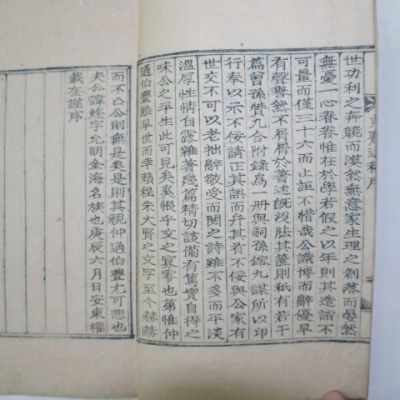 世功利之奔競而漠然無意家生理之剝落而學然
無憂一心眷眷惟在於學若假之以年則其造詣不
可量而僅三十六而止詎不惜哉公識博而辭優早
有聲譽然不屑屑於著述旣沒肷其篋則秖有若干
篇曾孫贊九合附錄爲一冊與嗣孫鎔九謀所以印
行奉以示不佞請正其誤而弁其看不佞與公家有
世交不可以老拙辭敬受而閱之詩雖不多而平淡
溫厚性情自露雖著幾篇精切該備有篤實自得之
味公之平生此可見矣奚恨乎文之寂寥也第惟仲
通伯豐雖早世而幸賴程朱大賢之文字至今赫赫
而不亡公則無是矣是則其視仲通伯豐尤可悲也
夫公諱 字允明金海名族也庚辰六月日安東權
載 謹序